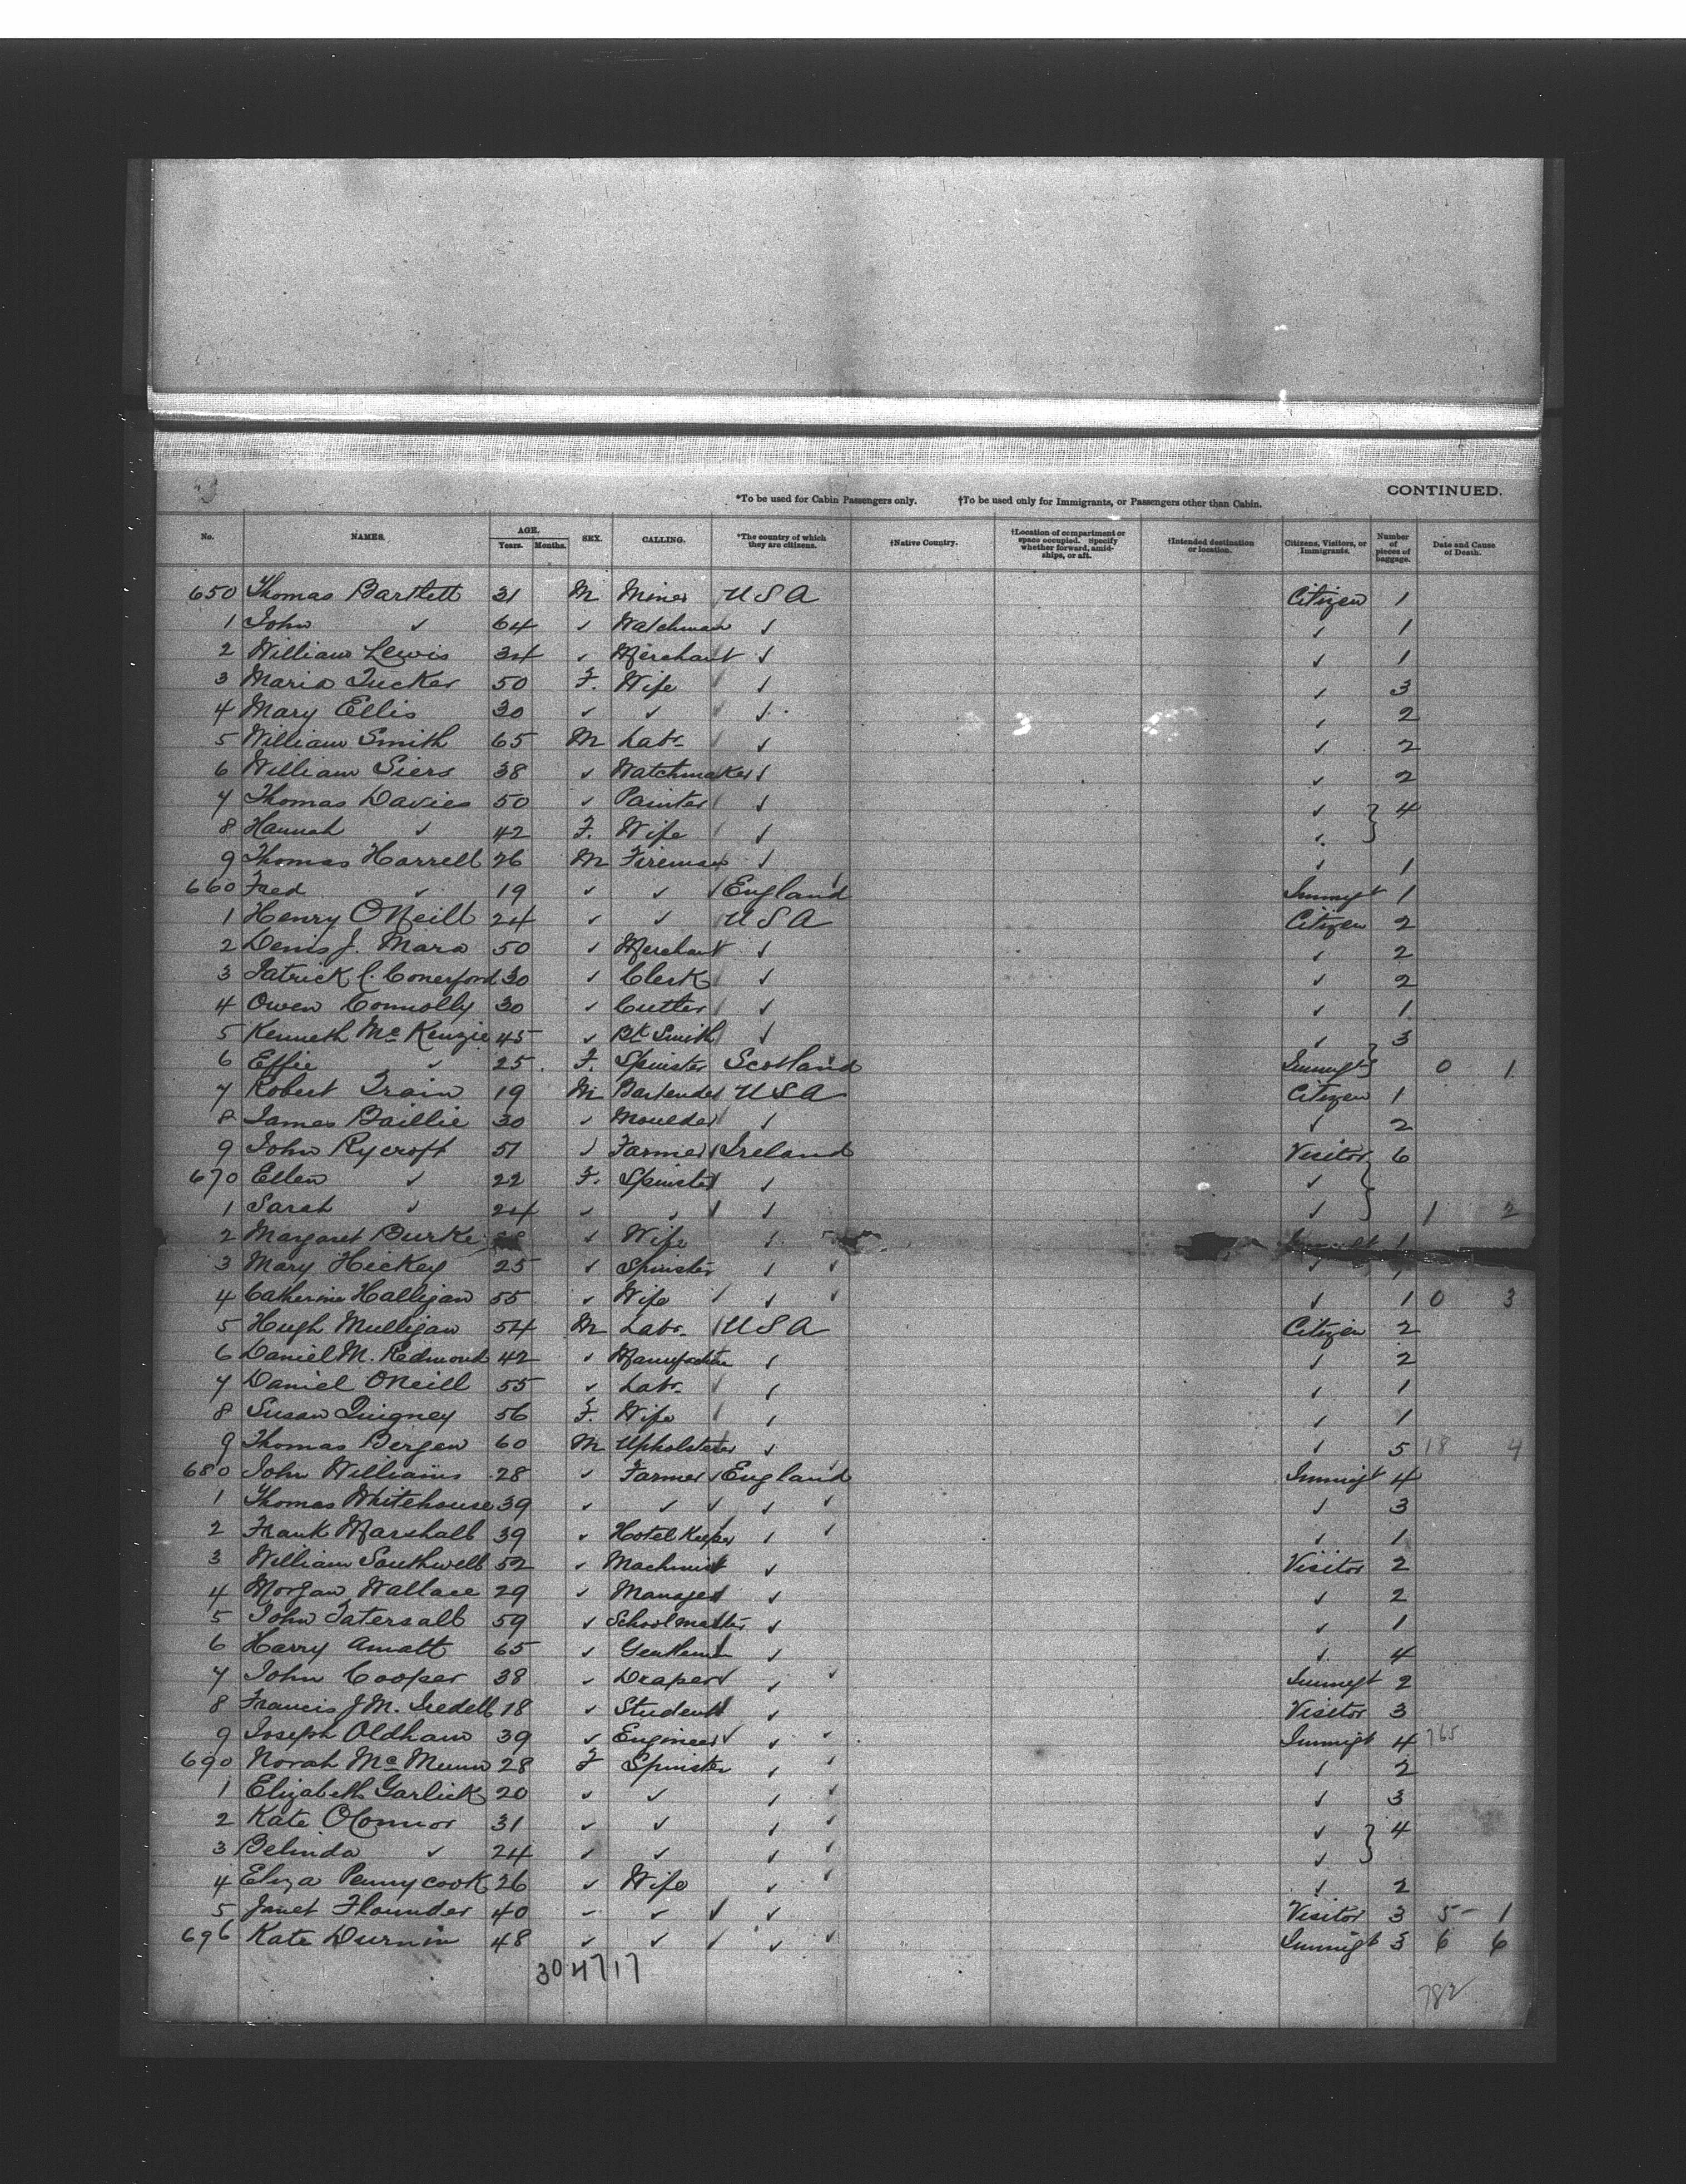 CONTINUED.
*To be used for Cabin Passengers only. †To be used only for Immigrants, or Passengers other than Cabin.
No. NAMES. AGE. Years. Months. SEX. CALLING. *The country of which they are citizens. †Native Country. †Location of compartment or space occupied. Specify whether forward, amidships, or aft. †Intended destination or location. Citizens, Visitors, or Immigrants. Number of pieces of baggage. Date and Cause of Death.
650 Thomas Bartlett 31 M Miner USA Citizen 1
1 John ✓ 64 ✓ Watchman ✓ ✓ 1
2 William Lewis 34 ✓ Merchant ✓ ✓ 1
3 Maria Tucker 50 F. Wife ✓ ✓ 3
4 Mary Ellis 30 ✓ ✓ ✓ ✓ 2
5 William Smith 65 M Labr. ✓ ✓ 2
6 William Siers 38 ✓ Watchmaker ✓ ✓ 2
7 Thomas Davies 50 ✓ Painter ✓ ✓ } 4
8 Hannah ✓ 42 F. Wife ✓ ✓
9 Thomas Harrell 26 M Fireman ✓ ✓ 1
660 Fred ✓ 19 ✓ ✓ England Immigt 1
1 Henry ONeill 24 ✓ ✓ USA Citizen 2
2 Denis J. Mara 50 ✓ Merchant ✓ ✓ 2
3 Patrick C. Comerford 30 ✓ Clerk ✓ ✓ 2
4 Owen Connolly 30 ✓ Cutler ✓ ✓ 1
5 Kenneth McKenzie 45 ✓ Bk Smith ✓ ✓ } 3
6 Effie ✓ 25 F. Spinster Scotland Immigt 0 1
7 Robert Train 19 M Bartender USA Citizen 1
8 James Baillie 30 ✓ Moulder ✓ ✓ 2
9 John Rycroft 51 ✓ Farmer Ireland Visitor } 6
670 Ellen ✓ 22 F. Spinster ✓ ✓
1 Sarah ✓ 24 ✓ ✓ ✓ ✓ 1 2
2 Margaret Burke ✓ Wife ✓ Immigt 1
3 Mary Hickey 25 ✓ Spinster ✓ ✓ 1
4 Catherine Halligan 55 ✓ Wife ✓ ✓ 1 0 3
5 Hugh Mulligan 54 M Labr. USA Citizen 2
6 Daniel M. Redmond 42 ✓ ✓ ✓ 2
7 Daniel ONeill 55 ✓ Labr. ✓ ✓ 1
8 Susan Quigney 56 F. Wife ✓ ✓ 1
9 Thomas Bergen 60 M Upholsterer ✓ ✓ 5 18 4
680 John Williams 28 ✓ Farmer England Immigt 4
1 Thomas Whitehouse 39 ✓ ✓ ✓ ✓ 3
2 Frank Marshall 39 ✓ Hotel Keeper ✓ ✓ 1
3 William Southwell 52 ✓ Machinist ✓ Visitor 2
4 Morgan Wallace 29 ✓ Manager ✓ ✓ 2
5 John Tatersall 59 ✓ Schoolmaster ✓ ✓ 1
6 Harry Amatt 65 ✓ Gentleman ✓ ✓ 4
7 John Cooper 38 ✓ Draper ✓ Immigt 2
8 Francis J M. Iredell 18 ✓ Student ✓ Visitor 3
9 Joseph Oldham 39 ✓ Engineer ✓ Immigt 4 765
690 Norah McMunn 28 F Spinster ✓ ✓ 2
1 Elizabeth Garlick 20 ✓ ✓ ✓ ✓ 3
2 Kate OConnor 31 ✓ ✓ ✓ ✓ } 4
3 Belinda ✓ 24 ✓ ✓ ✓ ✓
4 Eliza Pennycook 26 ✓ Wife ✓ ✓ 2
5 Janet Flounder 40 ✓ ✓ ✓ Visitor 3 5 1
696 Kate Durnin 48 ✓ ✓ ✓ Immigt 3 6 6
304717
782